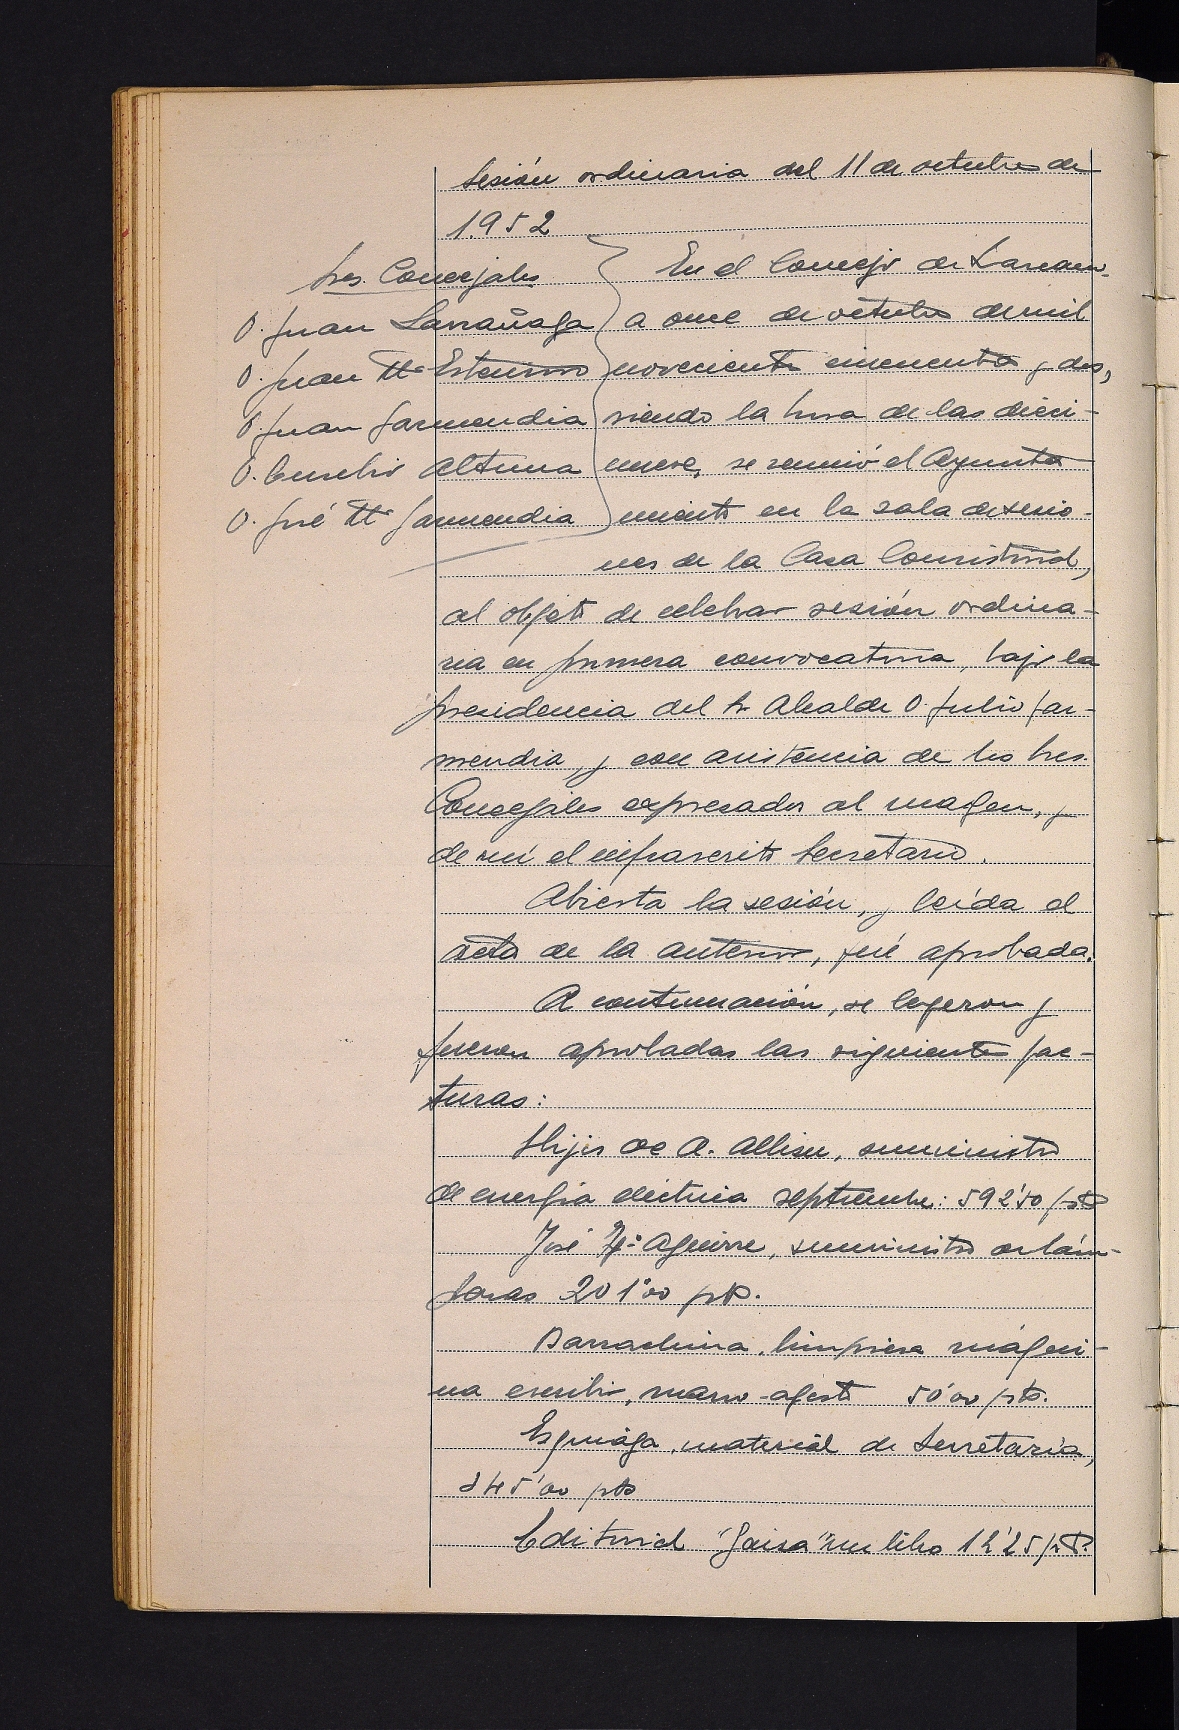 Sesión ordinaria del 11 de octubre de
1.952
Sres. Concejales
D. Juan Larrañaga
D. Juan Mª Estensoro
D. Juan Garmendia
D. Eusebio Altuna
D. José Mª Garmendia
En el Concejo de Larraun,
a once de octubre de mil
novecientos cincuenta y dos,
siendo la hora de las dieci-
nueve, se reunió el Ayunta
miento en la sala de sesio-
nes de la Casa Consistorial,
al objeto de celebrar sesión ordina-
ria en primera convocatoria, bajo la
presidencia del Sr. Alcalde D. Julio Gar-
mendia, y con asistencia de los Sres.
Concejales expresados al margen, y
de mí el infrascrito Secretario.
Abierta la sesión, y leída el
acta de la anterior, fué aprobada.
A continuación, se leyeron y
fueron aprobadas las siguientes fac-
turas:
Hijos de A. suministro
de energía eléctrica septiembre: 592'50 pts
José Mª Aguirre, suministro de lám-
paras 201'00 pts.
Barrachina, limpieza máqui-
na escribir, marzo-agosto 50'00 pts.
Eguiaga, material de Secretaría,
245'00 pts
Editorial "Gaisa" un libro 12'25 pts.